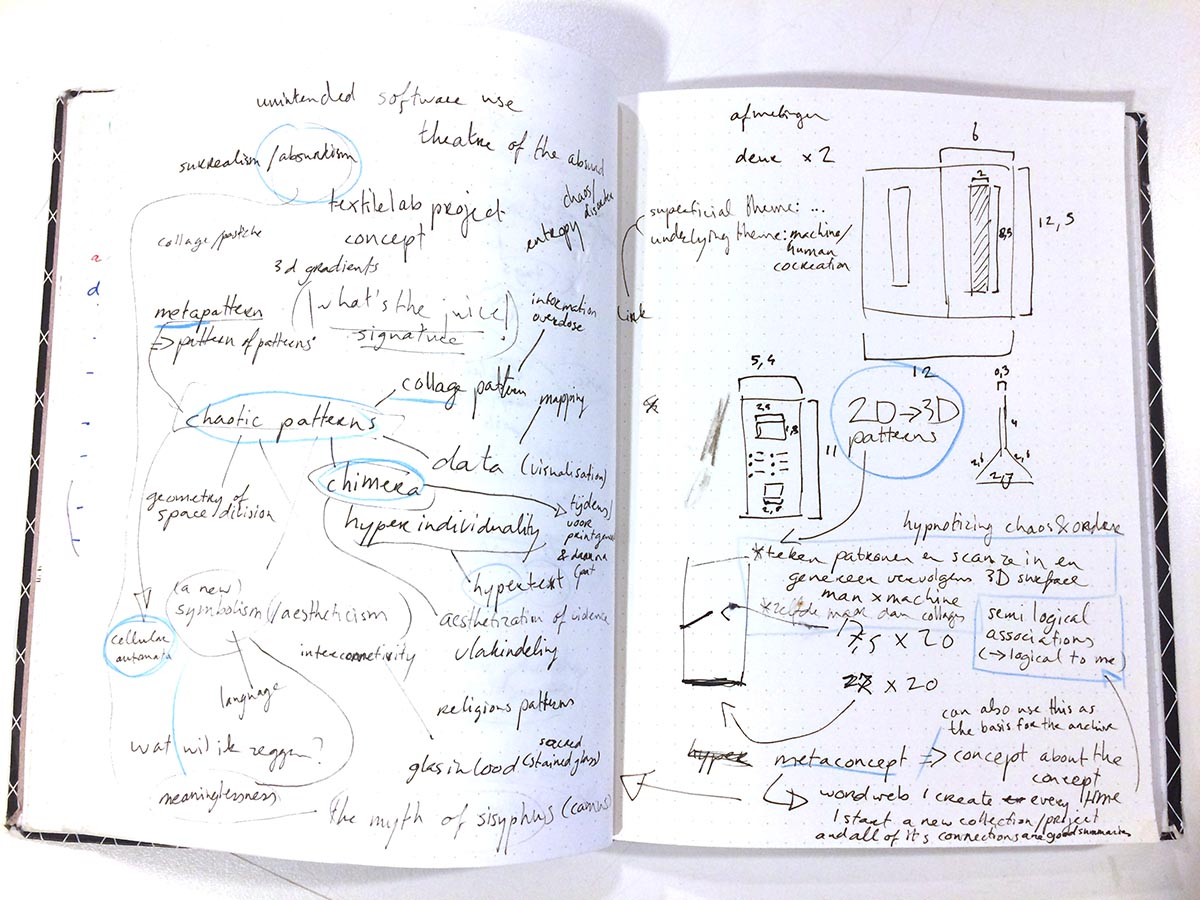 unintended software use
theatre of the absurd
surrealism/absurdism
chaos/
disorder
entropy
textilelab project
concept
collage/pastiche
3d gradients
metapattern
=> pattern of patterns
(what's the juice!)
signature
information
overdose
collage pattern
mapping
chaotic patterns
data (visualisation)
chimera
geometry of
space division
hyper individuality
tijdens/
voor
& daarna
hypertext
(a new)
symbolism (/aestheticism)
aesthetization of violence
cellular
automata
interconnectivity
vlakindeling
language
religious patterns
wat wil ik zeggen?
sacred
glas in lood (stained glass)
meaninglessness
the myth of sisyphus (camus)
a
d
afmetingen
deur x2
6
2
8,5
12,5
12
superficial theme: ...
underlying theme: machine/
human
cocreation
link
5,4
1,8
11
2D → 3D
patterns
0,3
4
hypnotizing chaos & order
*teken patronen en scan ze in en
genereer vervolgens 3D surface
man x machine
*zelfde maar dan collages
7,5 x 20
x 20
semi logical
associations
(→ logical to me)
can also use this as
the basis for the archive
hyper
metaconcept => concept about the
concept
wordweb I create every time
I start a new collection/project
and all of it's connections are good summaries